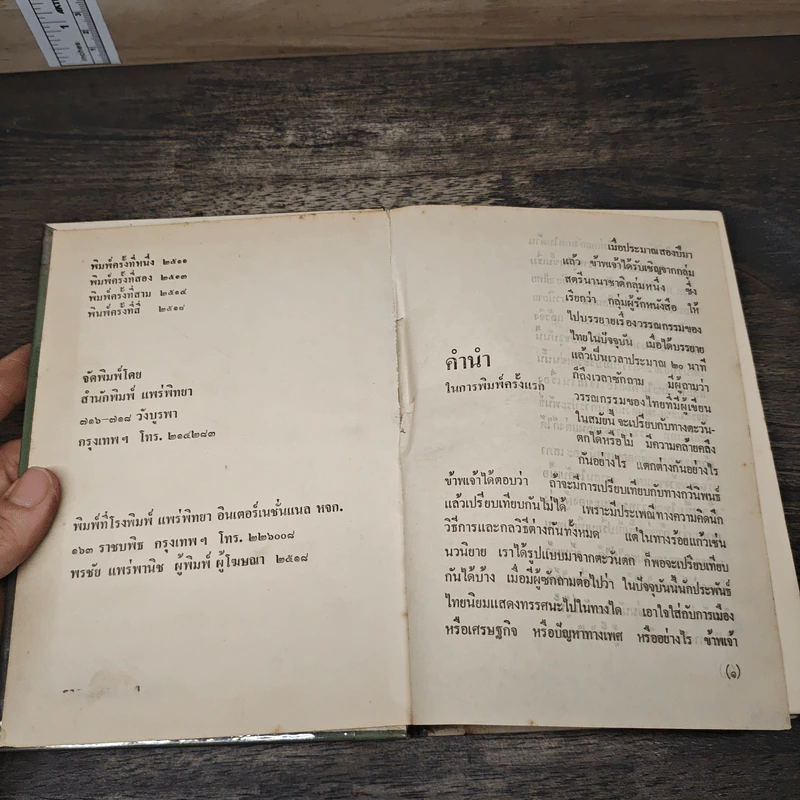 พิมพ์ครั้งที่หนึ่ง ๒๕๑๑
พิมพ์ครั้งที่สอง ๒๕๑๓
พิมพ์ครั้งที่สาม ๒๕๑๔
พิมพ์ครั้งที่สี่ ๒๕๑๘
จัดพิมพ์โดย
สำนักพิมพ์ แพร่พิทยา
๗๑๖–๗๑๘ วังบูรพา
กรุงเทพฯ โทร. ๒๑๔๒๘๓
พิมพ์ที่โรงพิมพ์ แพร่พิทยา อินเตอร์เนชั่นแนล หจก.
๑๖๓ ราชบพิธ กรุงเทพฯ โทร. ๒๒๖๐๐๘
พรชัย แพร่พานิช ผู้พิมพ์ ผู้โฆษณา ๒๕๑๘
คำนำ
ในการพิมพ์ครั้งแรก
เมื่อประมาณสองปีมา
แล้ว ข้าพเจ้าได้รับเชิญจากกลุ่ม
สตรีนานาชาติกลุ่มหนึ่ง ซึ่ง
เรียกว่า กลุ่มผู้รักหนังสือ ให้
ไปบรรยายเรื่องวรรณกรรมของ
ไทยในปัจจุบัน เมื่อได้บรรยาย
แล้วเป็นเวลาประมาณ ๒๐ นาที
ก็ถึงเวลาซักถาม มีผู้ถามว่า
วรรณกรรมของไทยที่มีผู้เขียน
ในสมัยนี้ จะเปรียบกับทางตะวัน-
ตกได้หรือไม่ มีความคล้ายคลึง
กันอย่างไร แตกต่างกันอย่างไร
ข้าพเจ้าได้ตอบว่า ถ้าจะมีการเปรียบเทียบกับทางกวีนิพนธ์
แล้วเปรียบเทียบกันไม่ได้ เพราะมีประเพณีทางความคิดนึก
วิธีการและกลวิธีต่างกันทั้งหมด แต่ในทางร้อยแก้วเช่น
นวนิยาย เราได้รูปแบบมาจากตะวันตก ก็พอจะเปรียบเทียบ
กันได้บ้าง เมื่อมีผู้ซักถามต่อไปว่า ในปัจจุบันนี้นักประพันธ์
ไทยนิยมแสดงทรรศนะไปในทางใด เอาใจใส่กับการเมือง
หรือเศรษฐกิจ หรือปัญหาทางเพศ หรืออย่างไร ข้าพเจ้า
(๑)